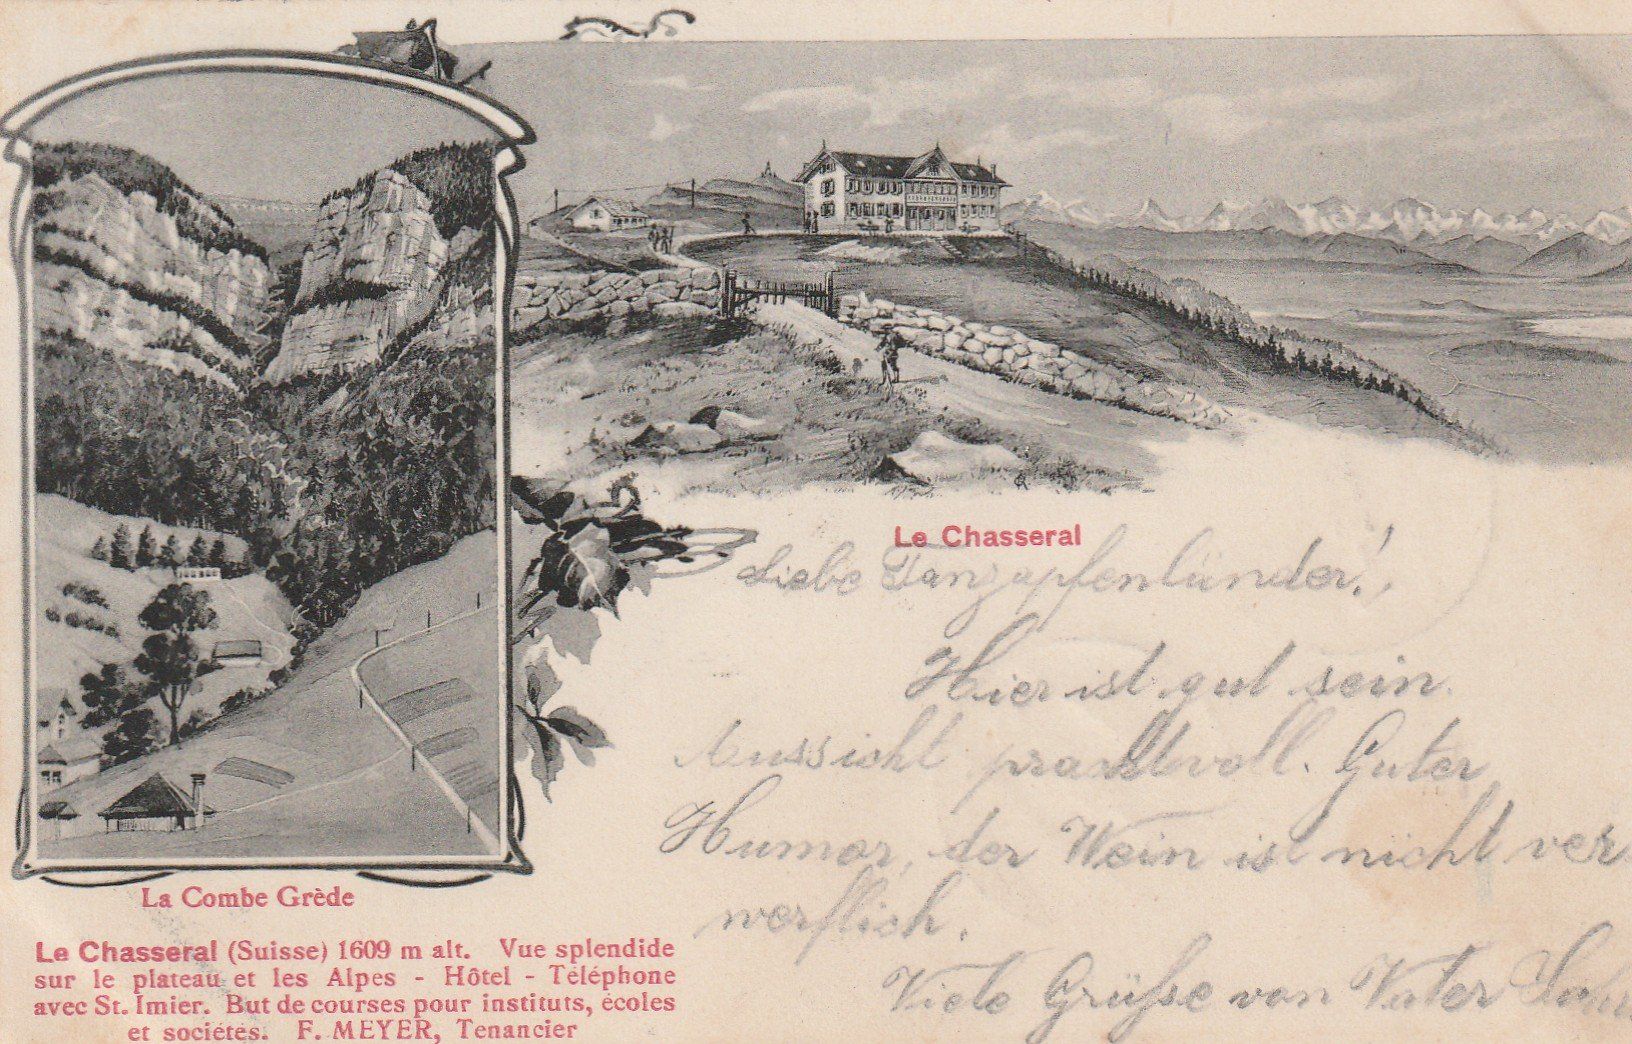 Le Chasseral
Liebe Tanzapfenländer!
Hier ist gut sein.
Aussicht prachtvoll. Guter
Humor, der Wein ist nicht ver
werflich.
Viele Grüße von Vater
La Combe Grède
Le Chasseral (Suisse) 1609 m alt. Vue splendide
sur le plateau et les Alpes - Hôtel - Téléphone
avec St. Imier. But de courses pour instituts, écoles
et sociétés. F. MEYER, Tenancier